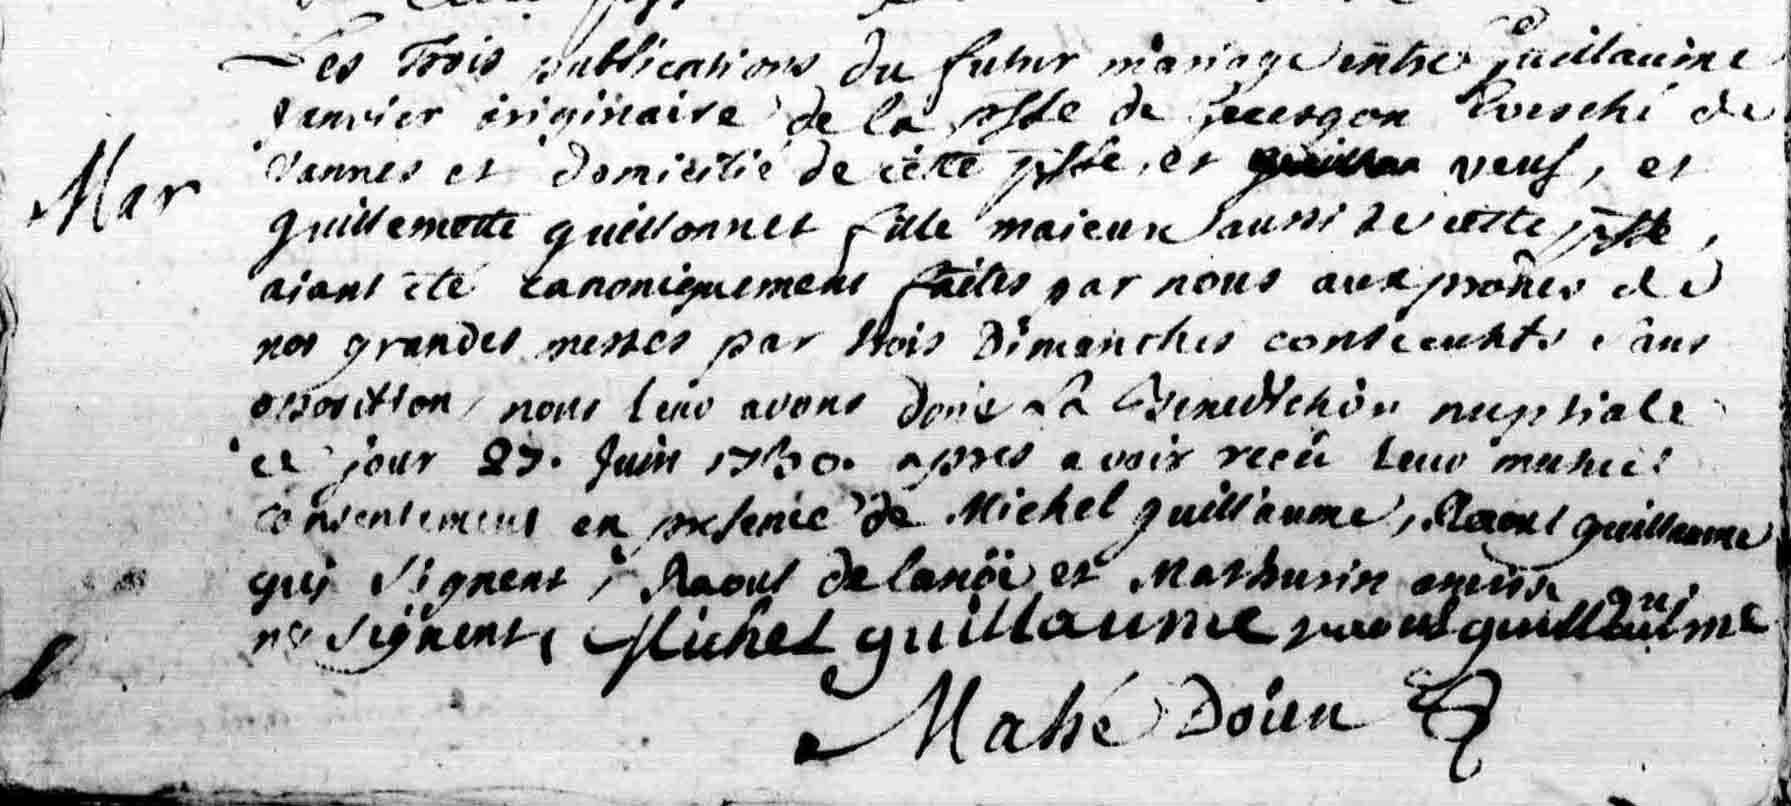 Les trois publications du futur mariage entre Guillaume
Janvier originaire de la psse de Guergon Evesché de
Vannes et domicilié de cette psse, et veuf, et
guillemette guillonnet fille majeure aussi de cette psse,
aiant été canoniquement faites par nous aux prônes de
nos grandes messes par trois Dimanches consecutifs sans
opposition, nous leur avons donné la Benediction nuptiale
ce jour 27. Juin 1730. apres avoir recû leur mutuel
consentement en presence de Michel guillaume, Raoul guillaume
Mar
qui signent, Raoul de lanöe et Mathurin qui
ne signent, Michel guillaume raoul guillaume
Mahé Doïen